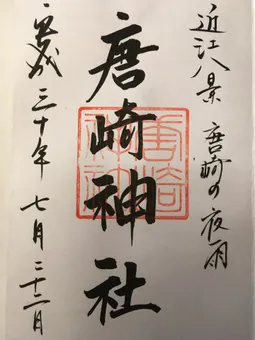 近江八景 唐崎の夜雨
唐崎神社
平成三十年 七月 二十二日